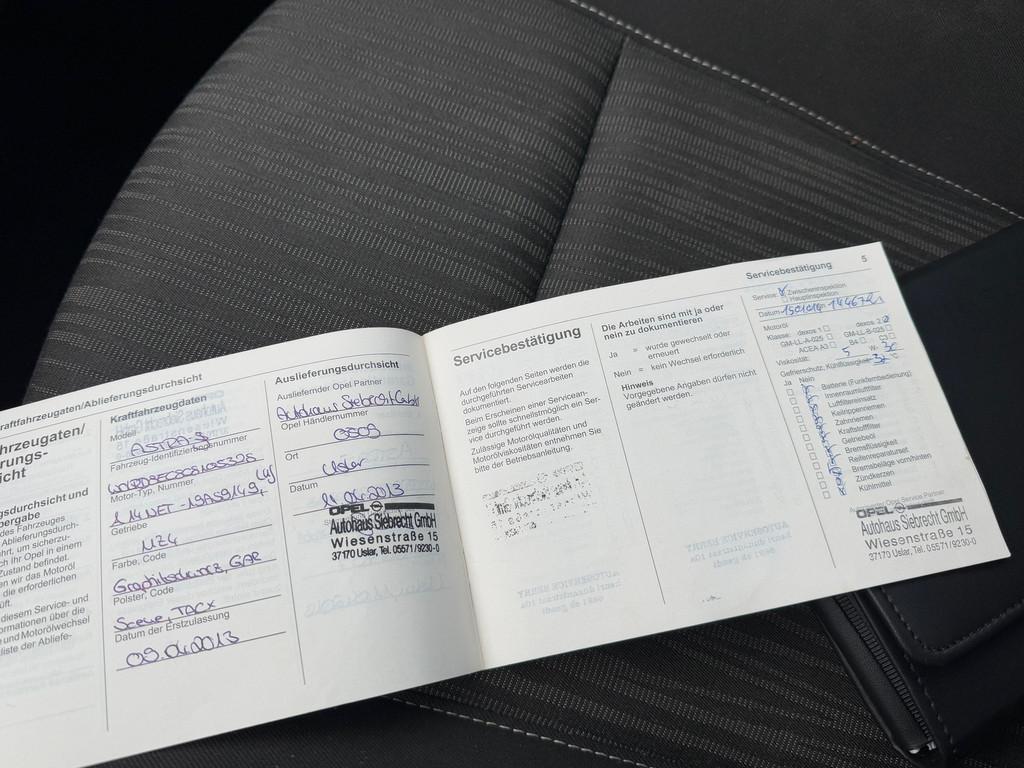 raftfahrzeugaten/Ablieferungsdurchsicht
hrzeugaten/
rungs-
icht
gsdurchsicht und
bergabe
des Fahrzeuges
Ablieferungsdurch-
hrt, um sicherzu-
ch Ihr Opel in einem
Zustand befindet.
en wir das Motoröl
die erforderlichen
üft.
diesem Service- und
ormationen über die
e und Motorölwechsel
liste der Abliefe-
Kraftfahrzeugdaten
Modell
ASTRA-J
Fahrzeug-Identifizierungsnummer
Motor-Typ, Nummer
Getriebe
MZ4
Farbe, Code
Graphitschwarz GAR
Polster, Code
TACX
Datum der Erstzulassung
09.04.2013
Auslieferungsdurchsicht
Ausliefernder Opel Partner
Autohaus Siebrecht GmbH
Opel Händlernummer
Ort
Uslar
Datum
04.2013
OPEL
Autohaus Siebrecht GmbH
Wiesenstraße 15
37170 Uslar, Tel. 05571/9230-0
Servicebestätigung 5
Servicebestätigung
Auf den folgenden Seiten werden die
durchgeführten Servicearbeiten
dokumentiert.
Beim Erscheinen einer Servicean-
zeige sollte schnellstmöglich ein Ser-
vice durchgeführt werden.
Zulässige Motorölqualitäten und
Motorölviskositäten entnehmen Sie
bitte der Betriebsanleitung.
Die Arbeiten sind mit ja oder
nein zu dokumentieren
Ja = wurde gewechselt oder
erneuert
Nein = kein Wechsel erforderlich
Hinweis
Vorgegebene Angaben dürfen nicht
geändert werden.
Service: Zwischeninspektion
Hauptinspektion
Datum
Motoröl
Klasse: dexos 1 dexos 2
GM-LL-A-025 GM-LL-B-025
ACEA A3 B4 C3
Viskosität: 5 W- 30
Gefrierschutz, Kühlflüssigkeit
Ja Nein
Batterie (Funkfernbedienung)
Innenraumluftfilter
Luftfiltereinsatz
Keilrippenriemen
Zahnriemen
Kraftstofffilter
Getriebeöl
Bremsflüssigkeit
Reifenreparaturset
Bremsbeläge vorn/hinten
Zündkerzen
Kühlmittel
Opel Service Partner
OPEL
Autohaus Siebrecht GmbH
Wiesenstraße 15
37170 Uslar, Tel. 05571/9230-0